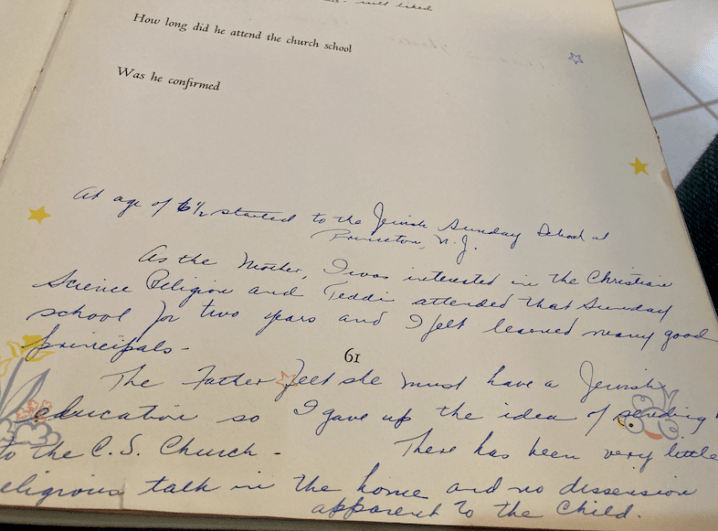 well liked
How long did he attend the church school
Was he confirmed
At age of 6½ started to the Jewish Sunday School at
Princeton, N.J.
As the Mother, I was interested in the Christian
Science Religion and Teddi attended that Sunday
school for two years and I felt learned many good
principals-
61
The Father felt she must have a Jewish
education so I gave up the idea of sending
to the C.S. Church -
There has been very little
religious talk in the home and no dissension
apparent to the child.